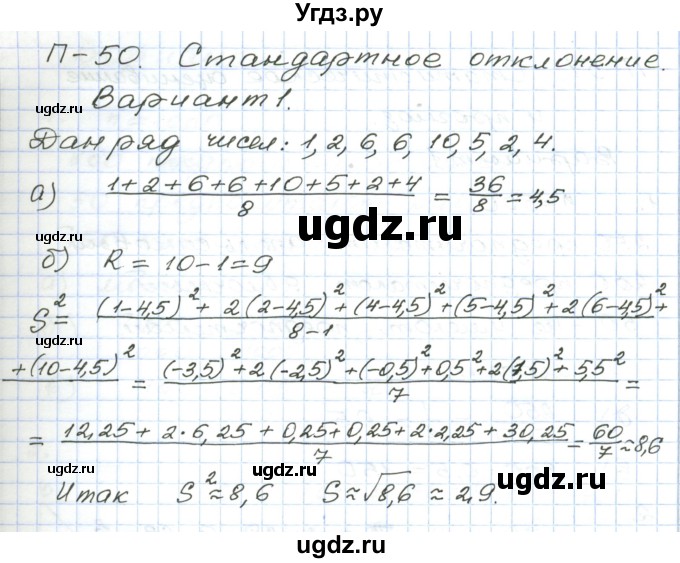 Угдз.ру
П-50. Стандартное отклонение.
Вариант 1.
ugdz.ru ugdz.ru
Дан ряд чисел: 1, 2, 6, 6, 10, 5, 2, 4.
а) (1+2+6+6+10+5+2+4)/8 = 36/8 = 4,5
ugdz.ru ugdz.ru ugdz.ru
б) R = 10-1=9
S² = (1-4,5)² + 2(2-4,5)² + (4-4,5)² + (5-4,5)² + 2(6-4,5)² +
8-1
ugdz.ru
+(10-4,5)² = ((-3,5)² + 2(-2,5)² + (-0,5)² + 0,5² + 2(1,5)² + 5,5²)/7 =
ugdz.ru ugdz.ru
= (12,25 + 2·6,25 + 0,25 + 0,25 + 2·2,25 + 30,25)/7 = 60/7 ≈ 8,6
ugdz.ru ugdz.ru
Итак S² ≈ 8,6 S ≈ √8,6 ≈ 2,9.
ugdz.ru
ugdz.ru